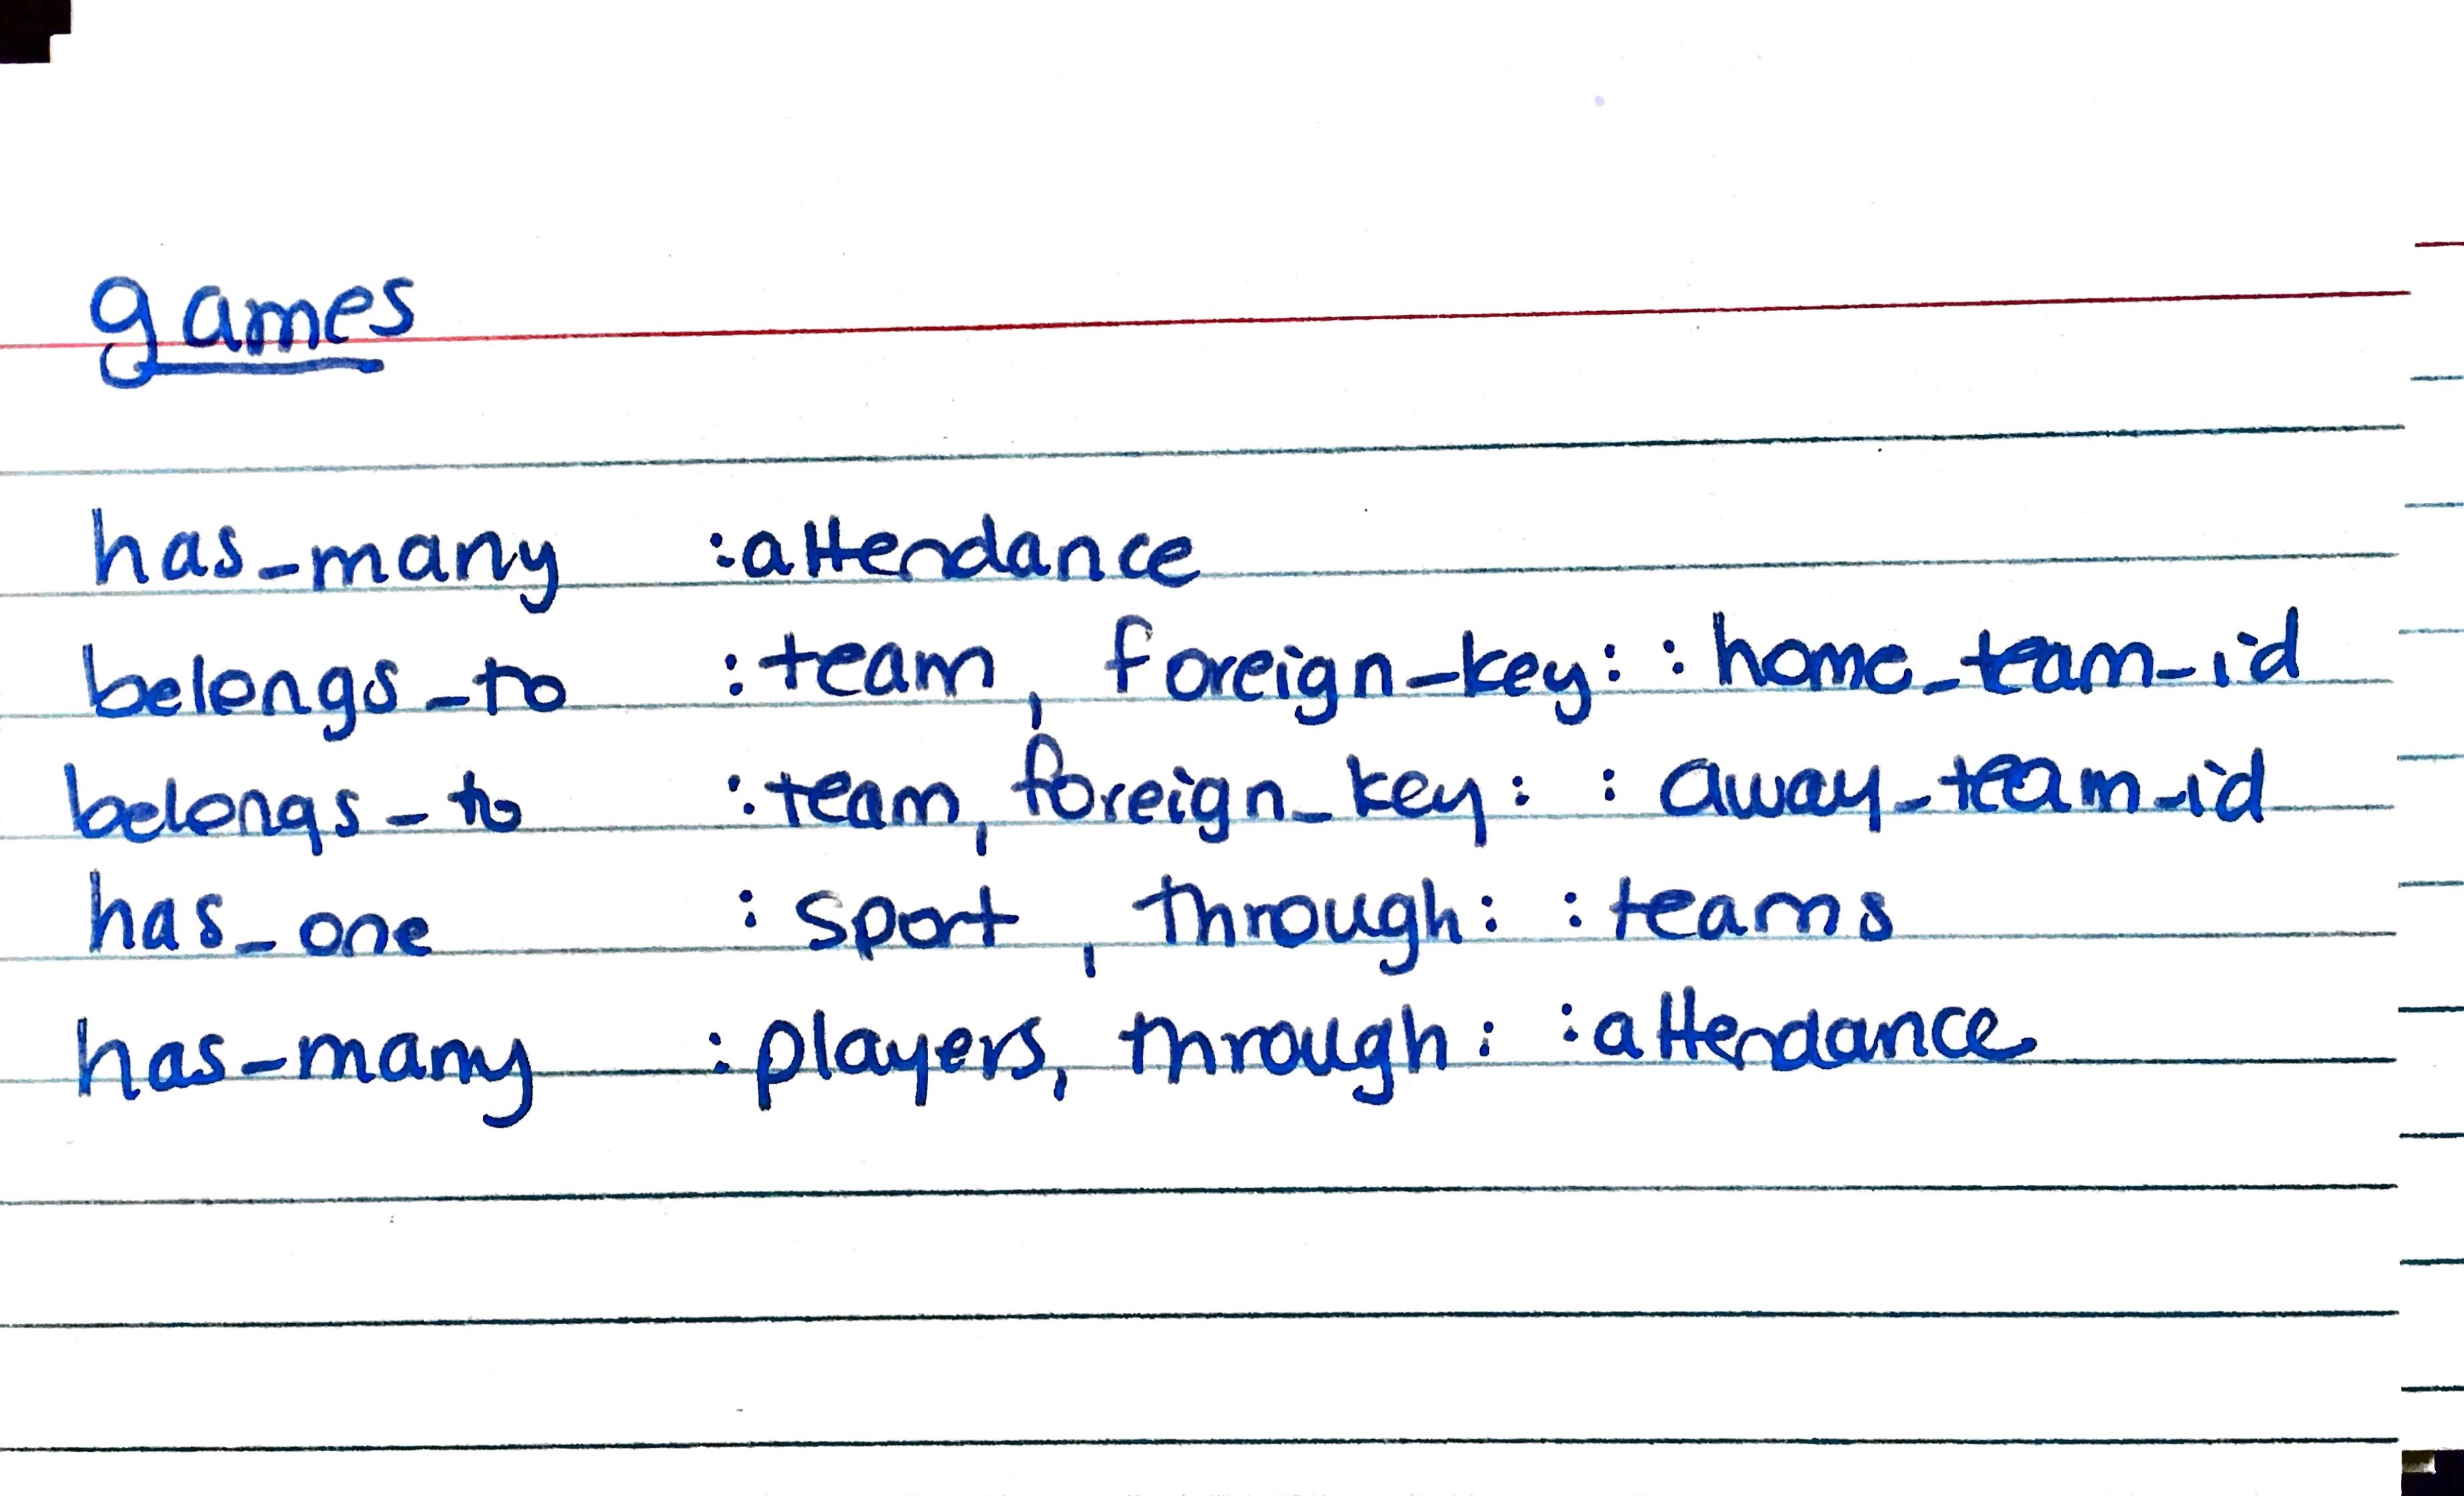 games
has_many :attendance
belongs_to :team, foreign_key: :home_team_id
belongs_to :team, foreign_key: :away_team_id
has_one :sport, through: :teams
has_many :players, through: :attendance